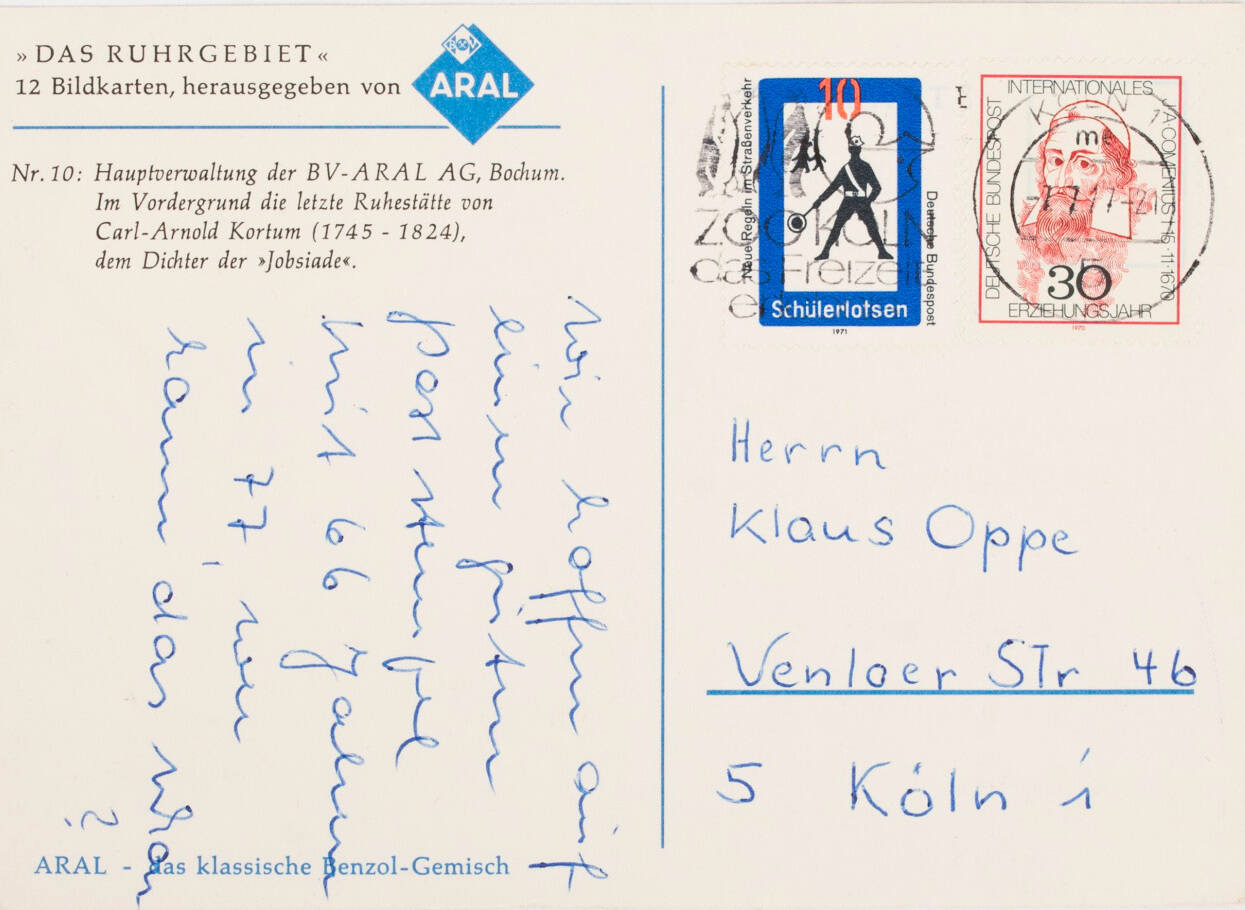 »DAS RUHRGEBIET«
12 Bildkarten, herausgegeben von
BV
ARAL
Nr. 10: Hauptverwaltung der BV-ARAL AG, Bochum.
Im Vordergrund die letzte Ruhestätte von
Carl-Arnold Kortum (1745 - 1824),
dem Dichter der »Jobsiade«.
wir hoffen auf
einen guten
Poststempel
mit 66 Jahren
in 77, wer
kann das schon
?
ARAL - das klassische Benzol-Gemisch
10
Neue Regeln im Straßenverkehr
Deutsche Bundespost
Schülerlotsen
1971
ZOO KÖLN
das Freizeit
INTERNATIONALES
J.A. COMENIUS † 15.11.1670
DEUTSCHE BUNDESPOST
30
ERZIEHUNGSJAHR
1970
KÖLN 1
me
Herrn
Klaus Oppe
Venloer STr 46
5 Köln 1